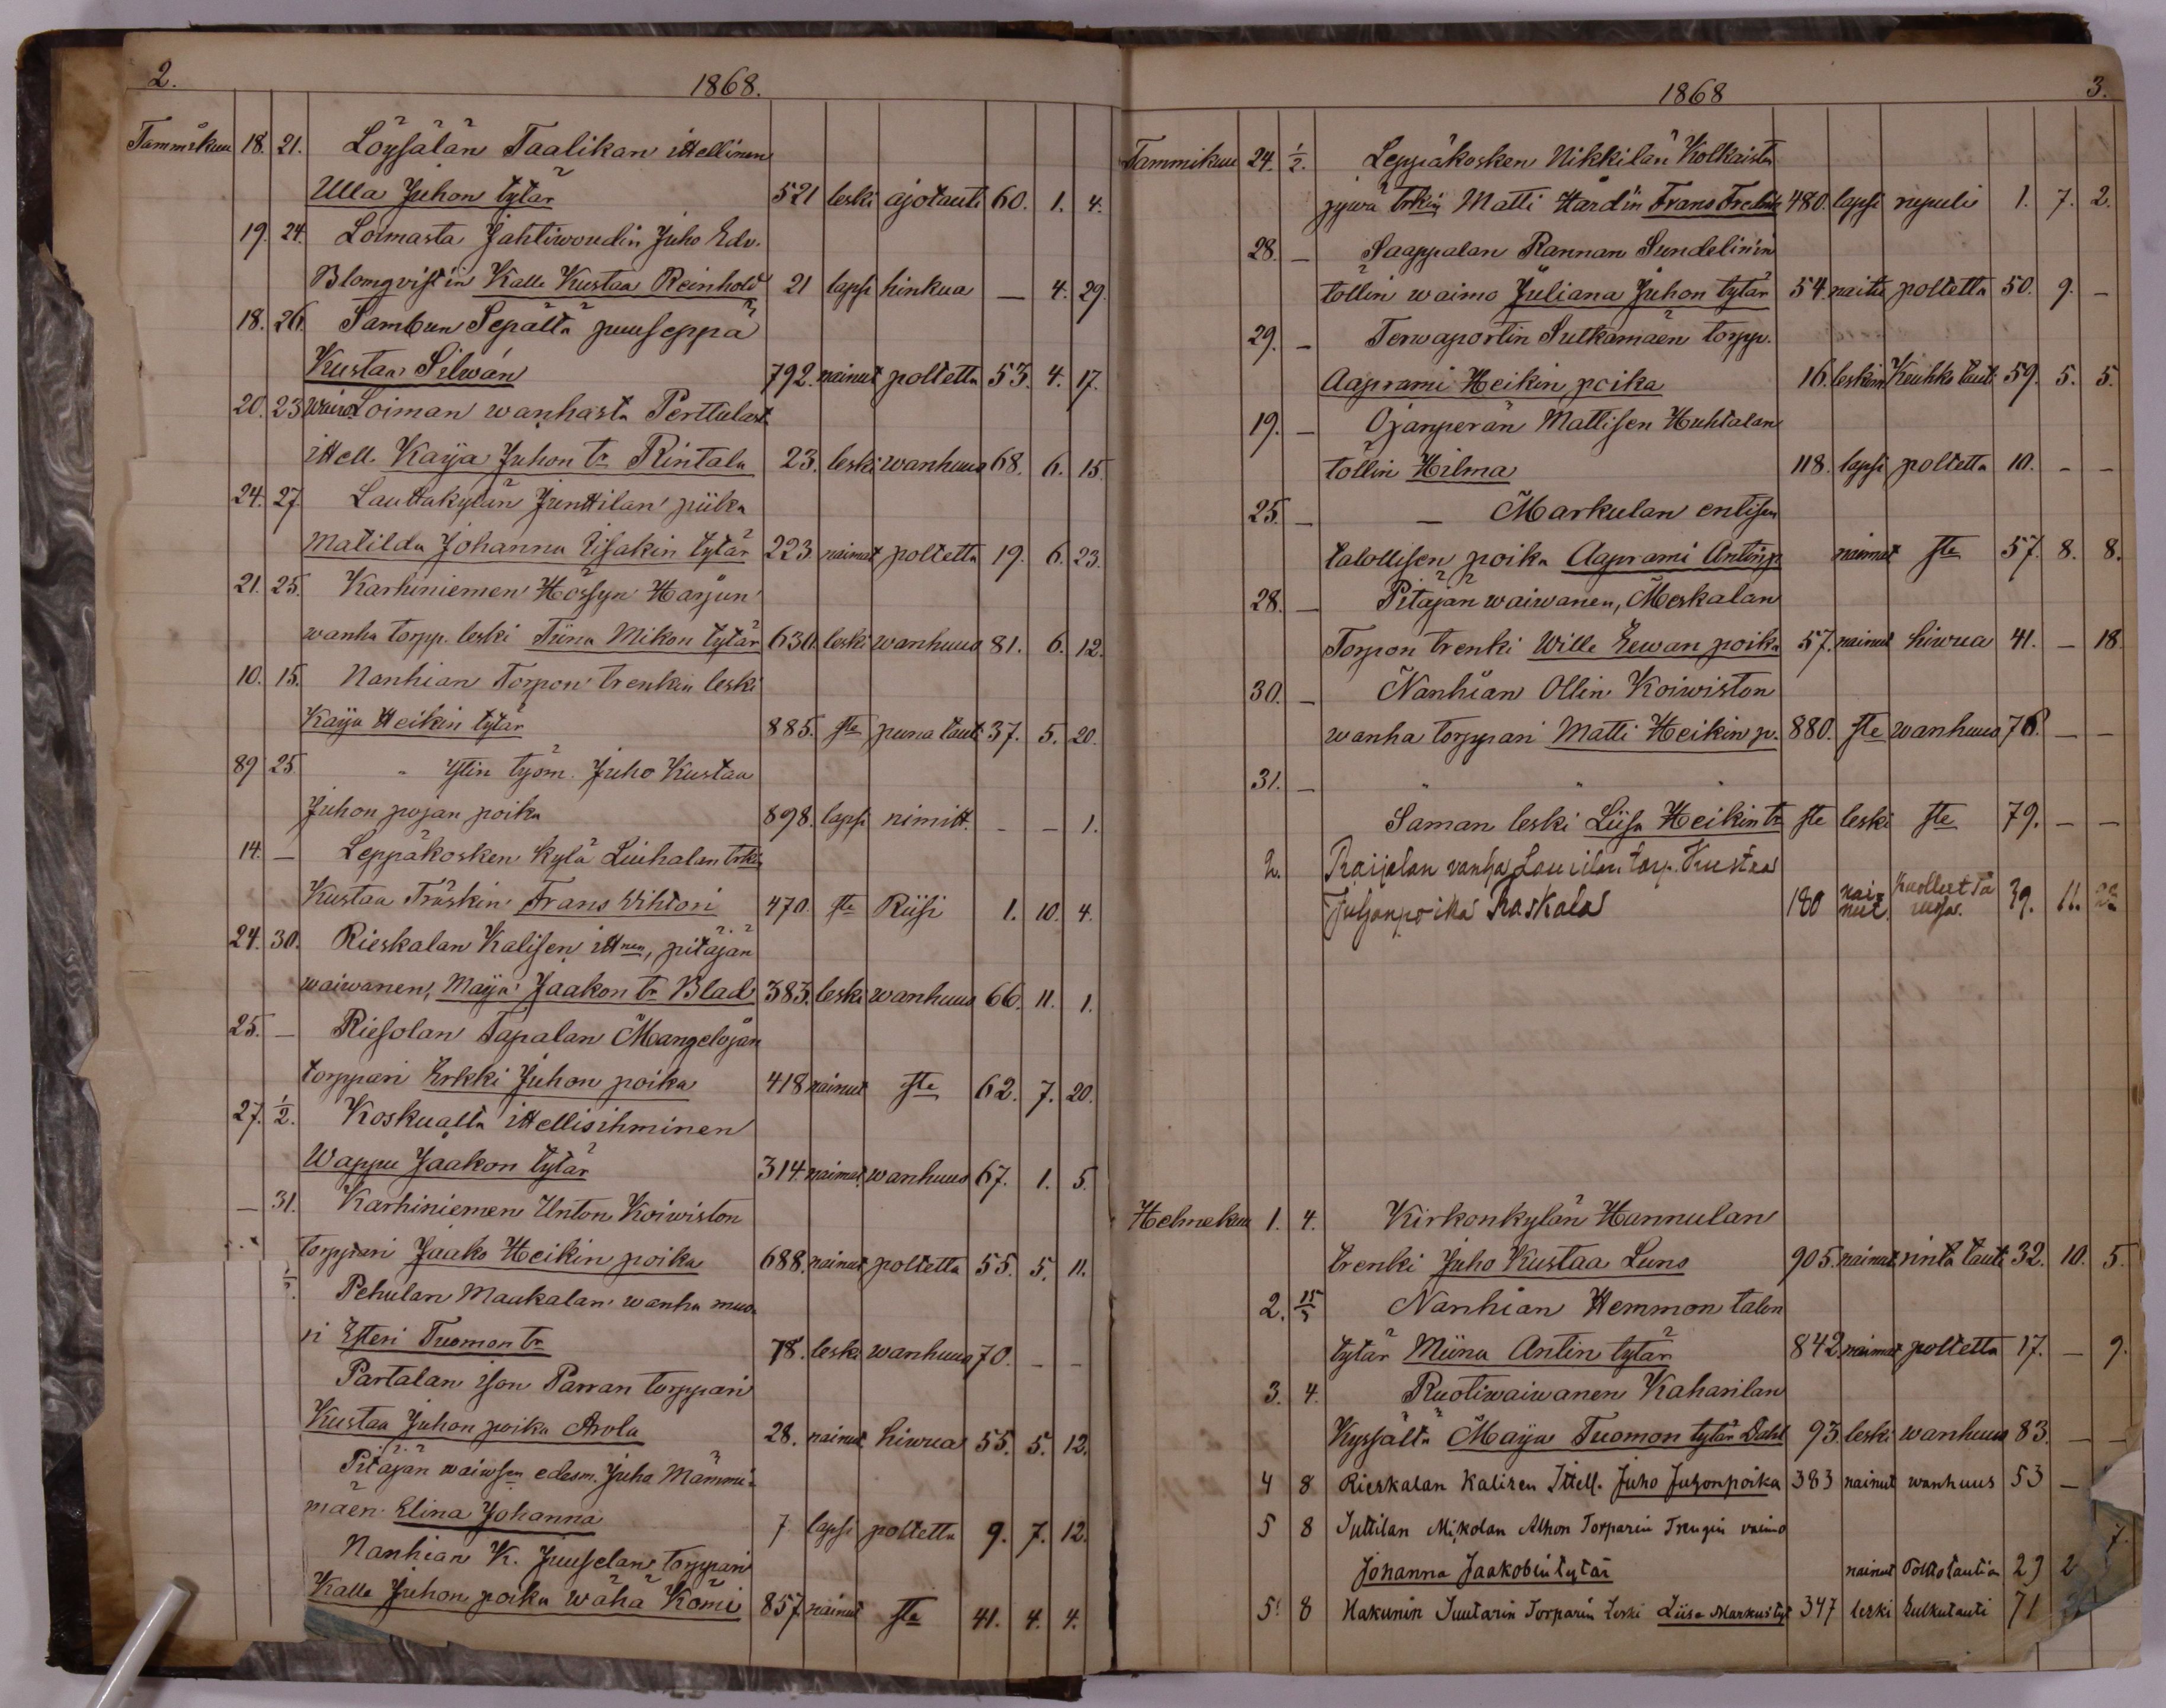 2. 1868.
Tammikuu 18. 21. Löysälän Taalikan ittellinen
Ulla Juhon tytär 521 leski ajotauti 60. 1. 4.
19. 24. Loimasta Jahtiwoudin Juho Edv.
Blomqvist'in Kalle Kustaa Reinhold 21 lapsi hinkua — 4. 29.
18. 26. Sambun Sepältä puuseppä
Kustaa Silwán 792. nainut poltetta 53. 4. 17.
20. 23. Loiman wanhasta Perttulast
ittell. Kaija Juhon tr Rintala 23. leski wanhuus 68. 6. 15.
24. 27. Lauttakylän Junttilan piika
Matilda Johanna Iisakin tytär 223 naimat poltetta 19. 6. 23.
21. 25. Karhiniemen Hössyn Harjun
wanha torpp. leski Tiina Mikon tytär 630. leski wanhuus 81. 6. 12.
10. 15. Nanhian Torpon trenkin leski
Kaija Heikin tytär 885. ste puna tauti 37. 5. 20.
89 25 " Yllin työm. Juho Kustaa
Juhon pojan poika 898. lapsi nimitt. - - 1.
14. — Leppäkosken kylä Liuhalan trkin
Kustaa Träskin Frans Wihtori 470. ste Riisi 1. 10. 4.
24. 30. Rieskalan Kalisen ittnen, pitäjän
waiwanen, Maija Jaakon tr Blad 383. leski wanhuus 66. 11. 1.
25. — Riesolan Tapalan Mangelojan
torppari Erkki Juhon poika 418 nainut ste 62. 7. 20.
27. 1/2. Koskualta ittellisihminen
Wappu Jaakon tytär 314. naimat. wanhuus 67. 1. 5.
— 31. Karhiniemen Unton Koiwiston
torppari Jaako Heikin poika 688. nainut poltetta 55. 5. 11.
Pehulan Maukalan wanha muo-
ri Esteri Tuomon tr 78. leski wanhuus 70. - -
Partalan ison Parran torppari
Kustaa Juhon poika Arola 28. nainut hiwua 55. 5. 12.
Pitäjän waiwsen edesm. Juha Mämmi-
mäen Elina Johanna 7 lapsi poltetta 9. 7. 12.
Nanhian K. Juuselan torppari
Kalle Juhon poika wähä Kömi 857. nainut ste 41. 4. 4.
1868 3.
Tammikuu 24. 1/2. Leppäkosken Nikkilän Kolkaista
pywä trkin Matti Hardin Frans 480. lapsi rupuli 1. 7. 2.
28. — Saappalan Rannan Sundelin'in
töllin waimo Juliana Juhon tytär 54. naitu poltetta 50. 9. —
29. — Terwaportin Sutkamäen torpp.
Aaprami Heikin poika 16. leskim Keuhko taut 59. 5. 5.
19. — Ojanperän Mattisen Huhtalan
töllin Hilma 118. lapsi poltetta 10. - -
25. — — Markulan entisen
talollisen poika Aaprami Antin p. naimat ste 57. 8. 8.
28. — Pitäjän waiwanen, Meskalan
Torpon trenki Wille Eewan poika 57. nainut hiwua 41. — 18.
30. — Nanhian Ollin Koiwiston
wanha torppari Matti Heikin p. 880. ste wanhuus 76. — —
31. — " " "
Saman leski Liisa Heikin tr ste leski ste 79. — —
2. Raijalan vanha Laurilan torp. Kustaa
Juhonpoika Raskala 180 nai=nut. 39. 11.
Helmekuu 1. 4. Kirkonkylän Hannulan
trenki Juho Kustaa Luns 905. naimat rinta tauti 32. 10. 5.
2. 15/3 Nanhian Hemmon talon
tytär Miina Antin tytär 842 naimat poltetta 17. — 9.
3. 4. Ruotiwaiwanen Kaharilan
Kyssältä Maija Tuomon tytär Dahl 93. leski wanhuus 83. — —
4 8 Rieskalan Kalisen Ittell. Juho Juhonpoika 383 nainut wanhuus 53 —
5 8 Suttilan Mikolan Alhon Torparin Trengin vaimo
Johanna Jaakobintytär nainut Polttotautia 29 2 7.
5. 8 Hakunin Juutarin Torparin Leski Liisa Markustyt 347 leski kulkutauti 71